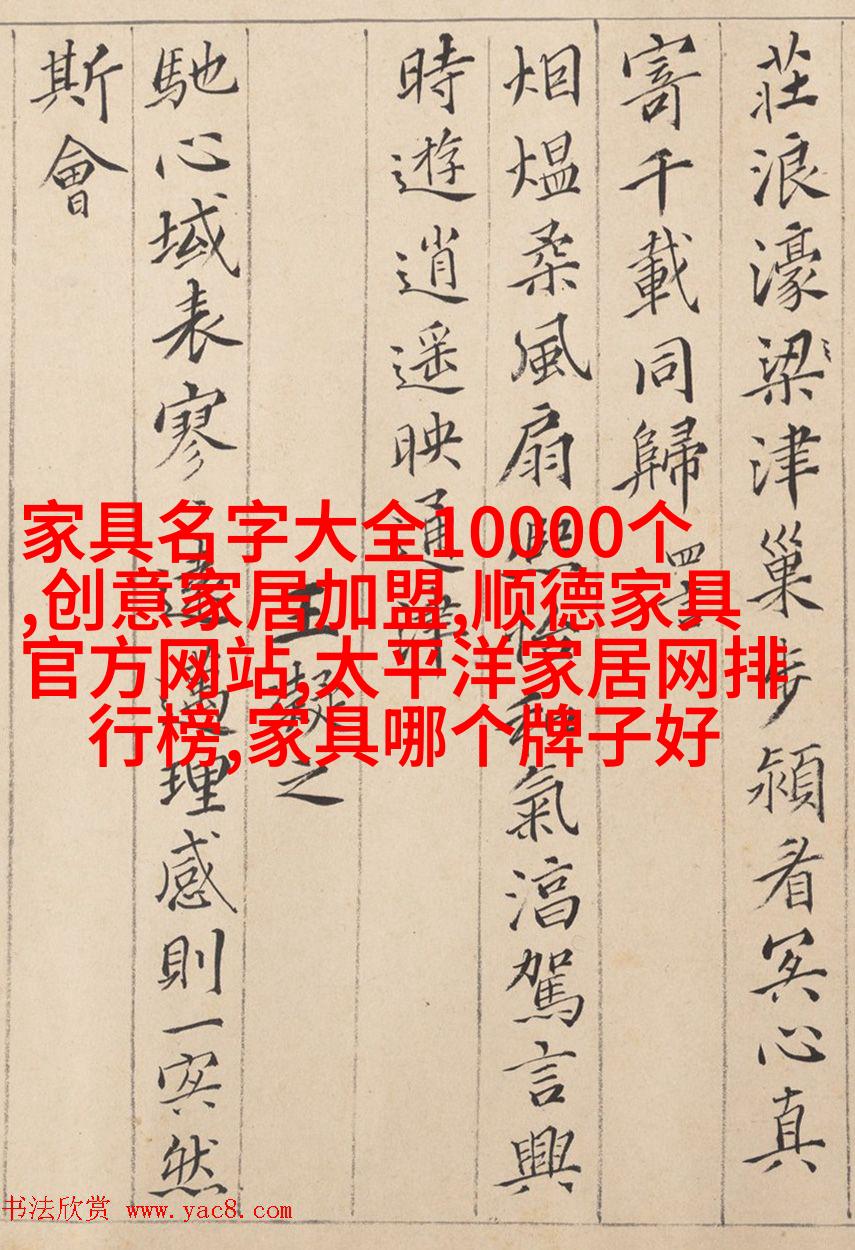 莊浪濠梁津巢步潁看冥心真
寄千載同歸 四言
烟熅柔風扇和氣湻駕言興
時遊逍遥映通津
王凝之
馳心域表寥遠邁理感則一冥然
斯會
家具名字大全10000个
,创意家居加盟,顺德家具
官方网站,太平洋家居网排
行榜,家具哪个牌子好
书法欣赏 www.yac8.com